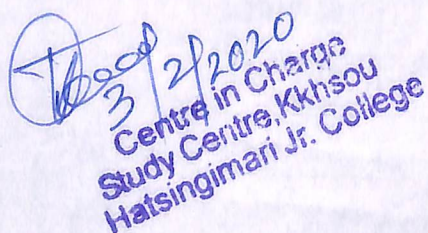 3/2/2020
Centre in Charge
Study Centre, Kkhsou
Hatsingimari Jr. College